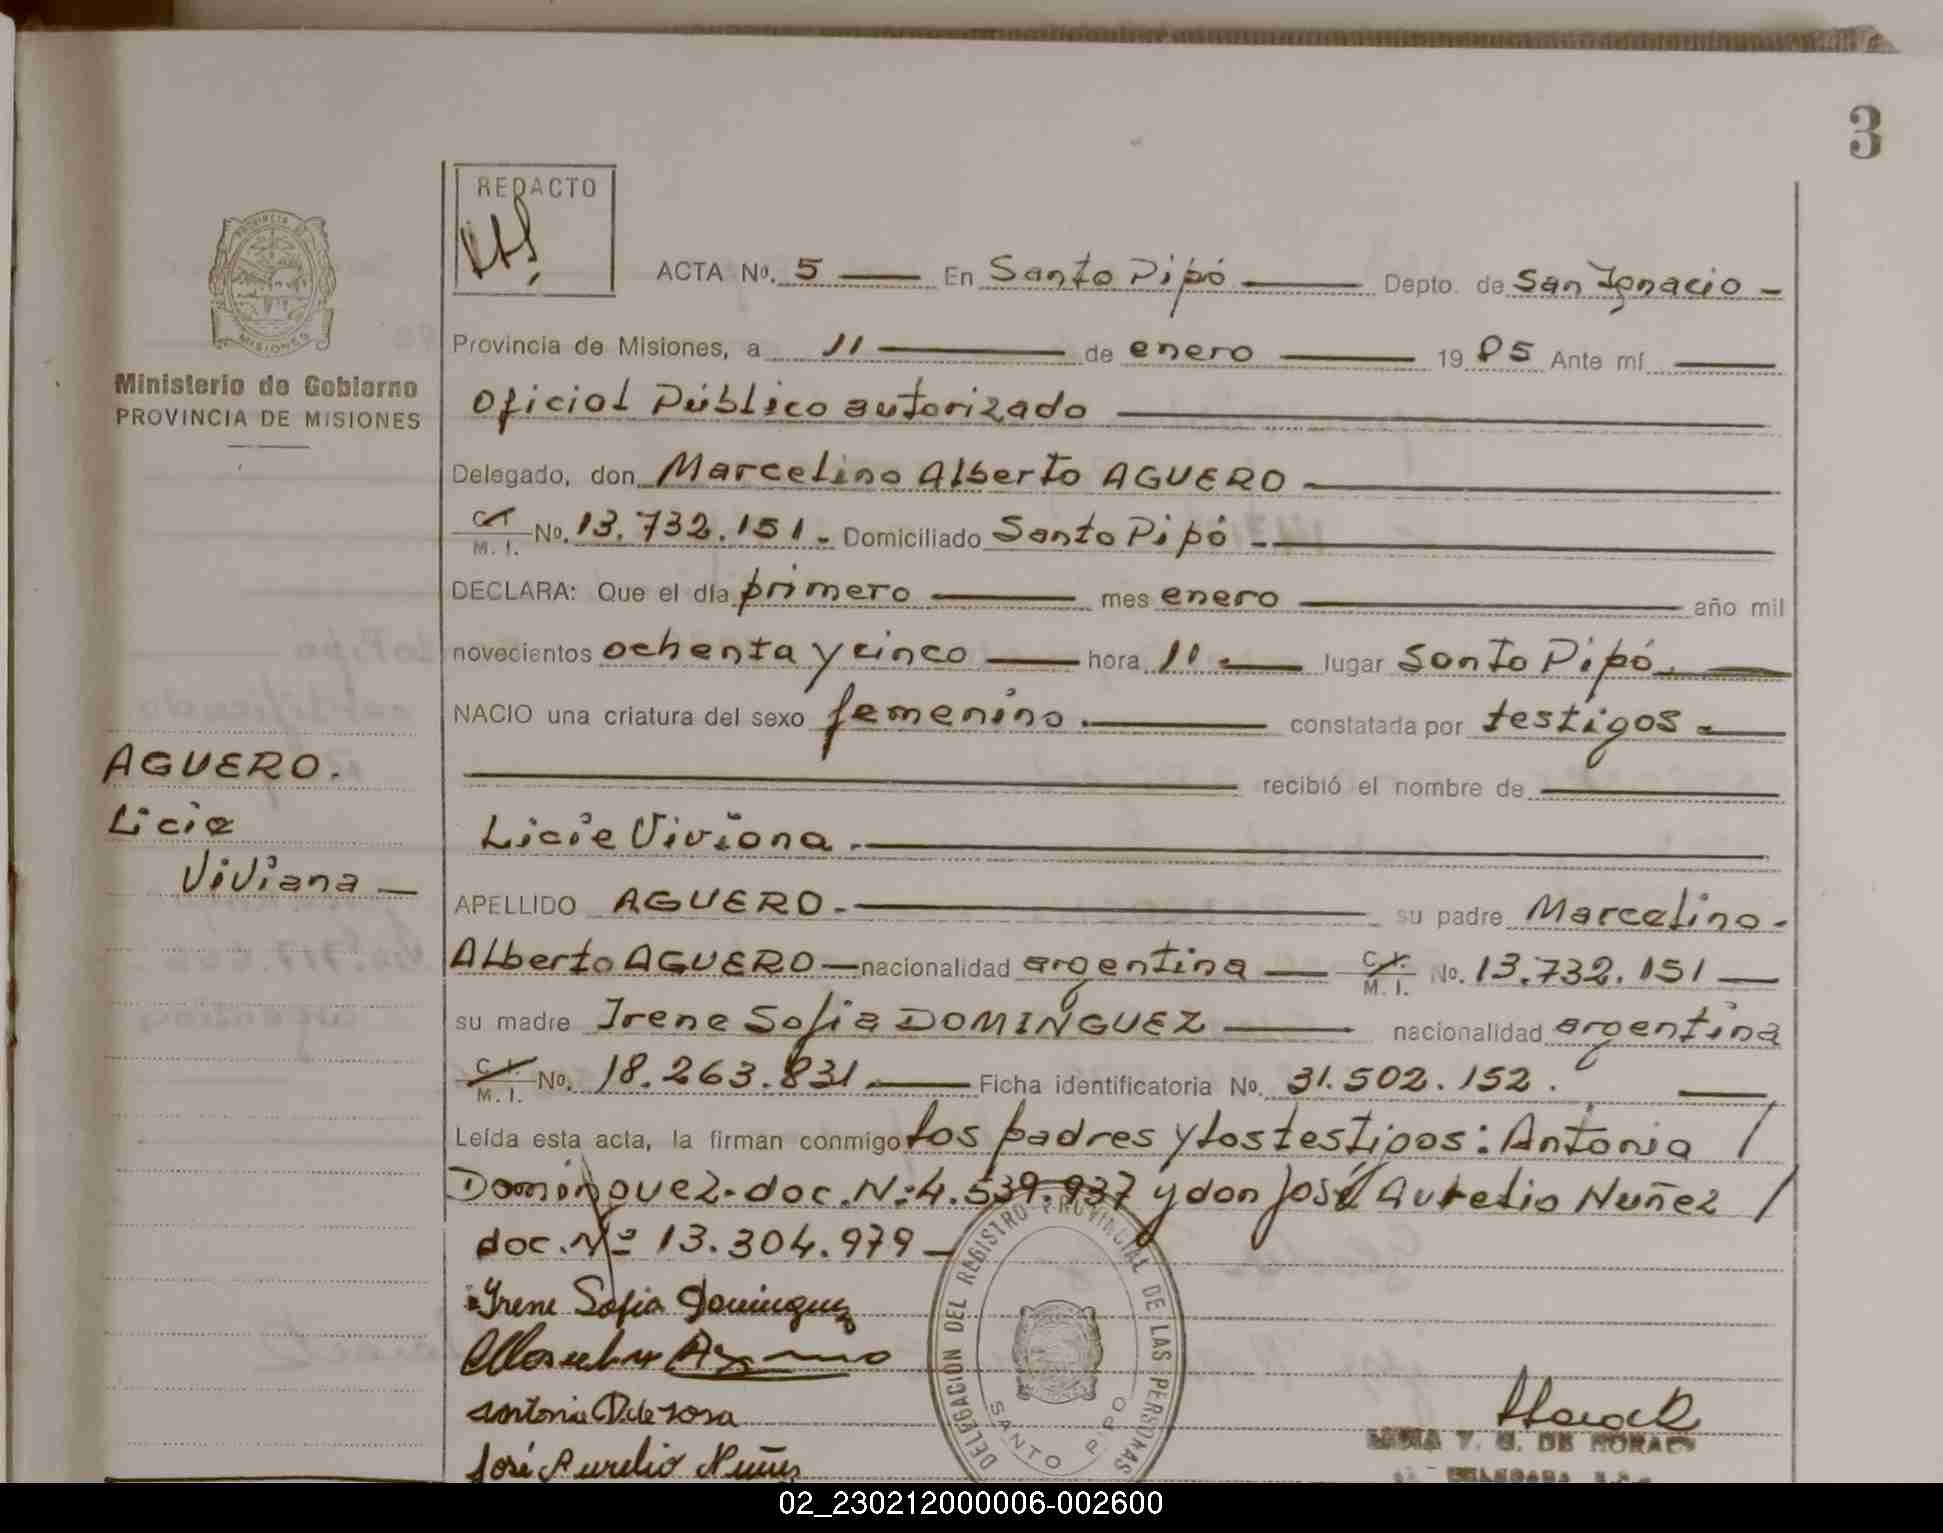 3
REDACTO
ACTA No. 5 En Santo Pipó Depto. de San Ignacio -
Provincia de Misiones, a 11 de enero 1985 Ante mí
Ministerio de Gobierno
PROVINCIA DE MISIONES
PROVINCIA DE
MISIONES
Oficial Público autorizado
Delegado, don Marcelino Alberto AGUERO
C.I. M. I. No. 13.732.151.- Domiciliado Santo Pipó -
DECLARA: Que el día primero mes enero año mil
novecientos ochenta y cinco hora 11 lugar Santo Pipó.
NACIO una criatura del sexo femenino. constatada por testigos -
recibió el nombre de
AGUERO.
Licia
Viviana -
Licie Viviana.
APELLIDO AGUERO.- su padre Marcelino-
Alberto AGUERO - nacionalidad argentina C.I. M. I. No. 13.732.151
su madre Irene Sofia DOMINGUEZ nacionalidad argentina
C.I. M. I. No. 18.263.831 Ficha identificatoria No. 31.502.152.
Leída esta acta, la firman conmigo los padres y los testigos: Antonia /
Dominguez. doc. Nº 4.539.937 y don José Aurelio Nuñez /
doc. Nº 13.304.979 -
Irene Sofia Dominguez
Antonia D. de Sosa
José Aurelio Nuñez
DELEGACION DEL REGISTRO PROVINCIAL DE LAS PERSONAS
SANTO PIPO
V. G. DE MORAES
DELEGADA
02_230212000006-002600